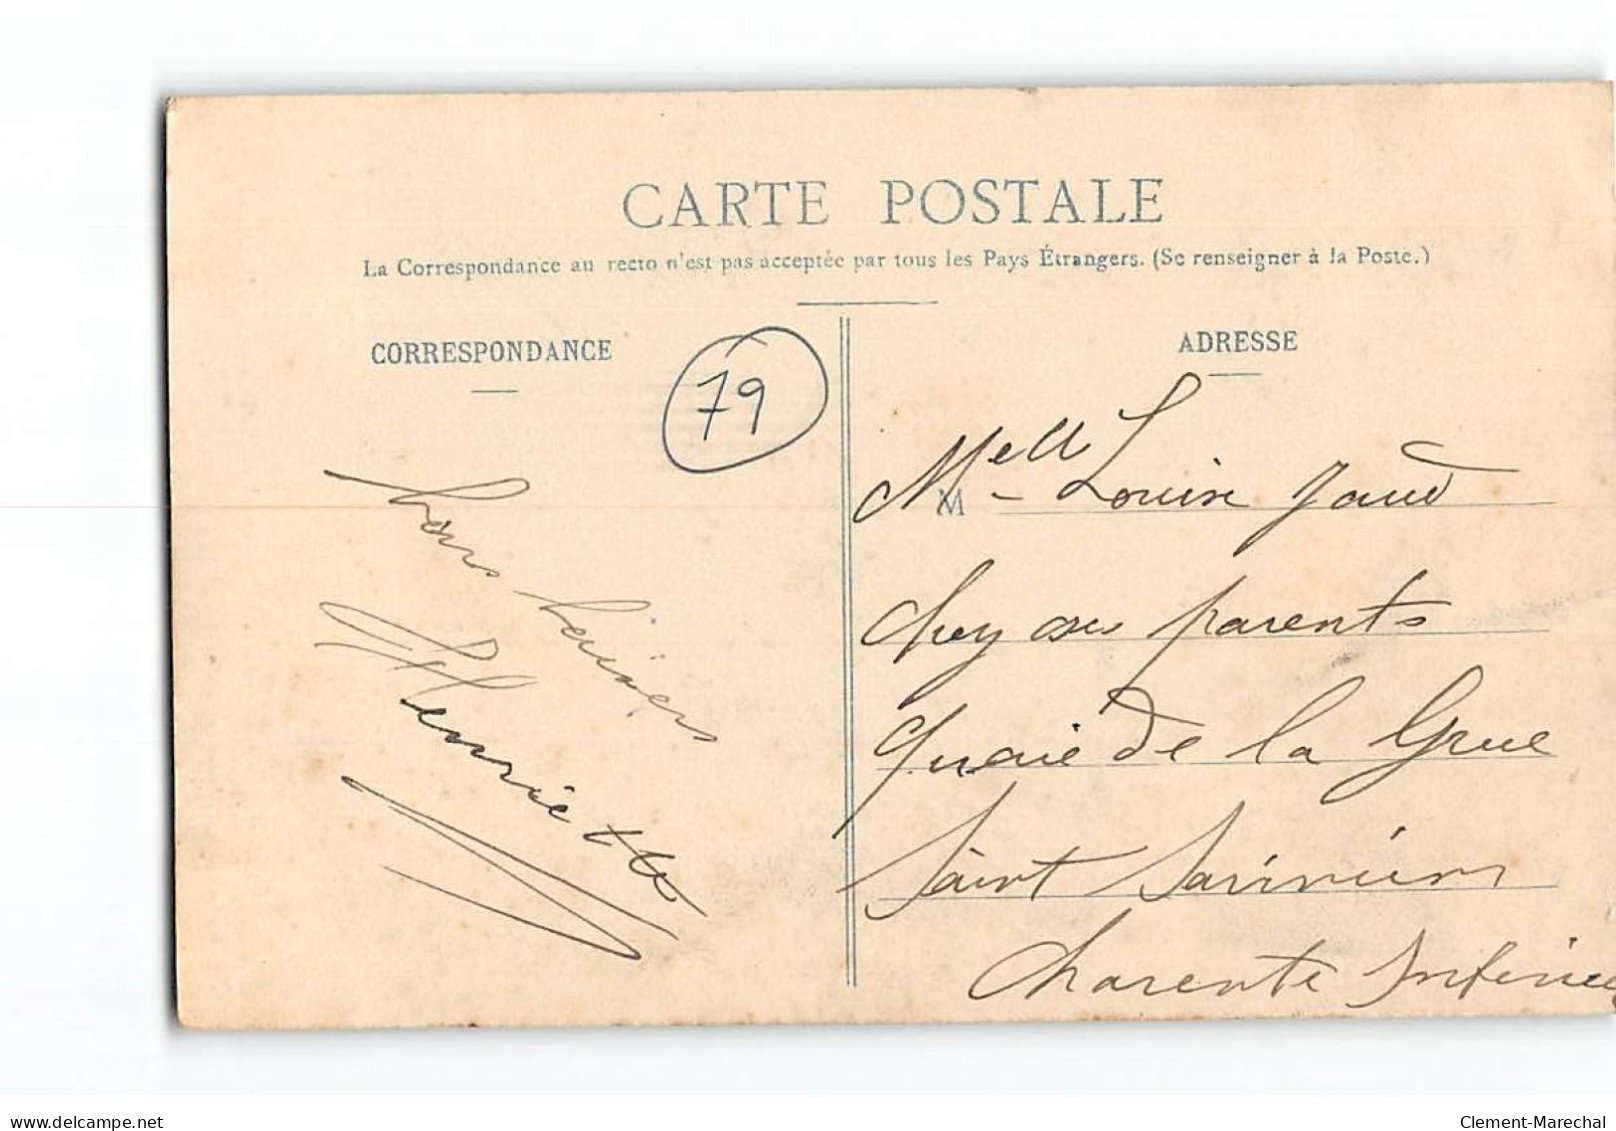 CARTE POSTALE
La Correspondance au recto n'est pas acceptée par tous les Pays Étrangers. (Se renseigner à la Poste.)
CORRESPONDANCE
79
bons baisers
Henriette
ADRESSE
M
Melle Louise Jaud
chez ses parents
quaie de la Grue
Saint Savinien
Charente Inférieu
delcampe.net
Clement-Marechal